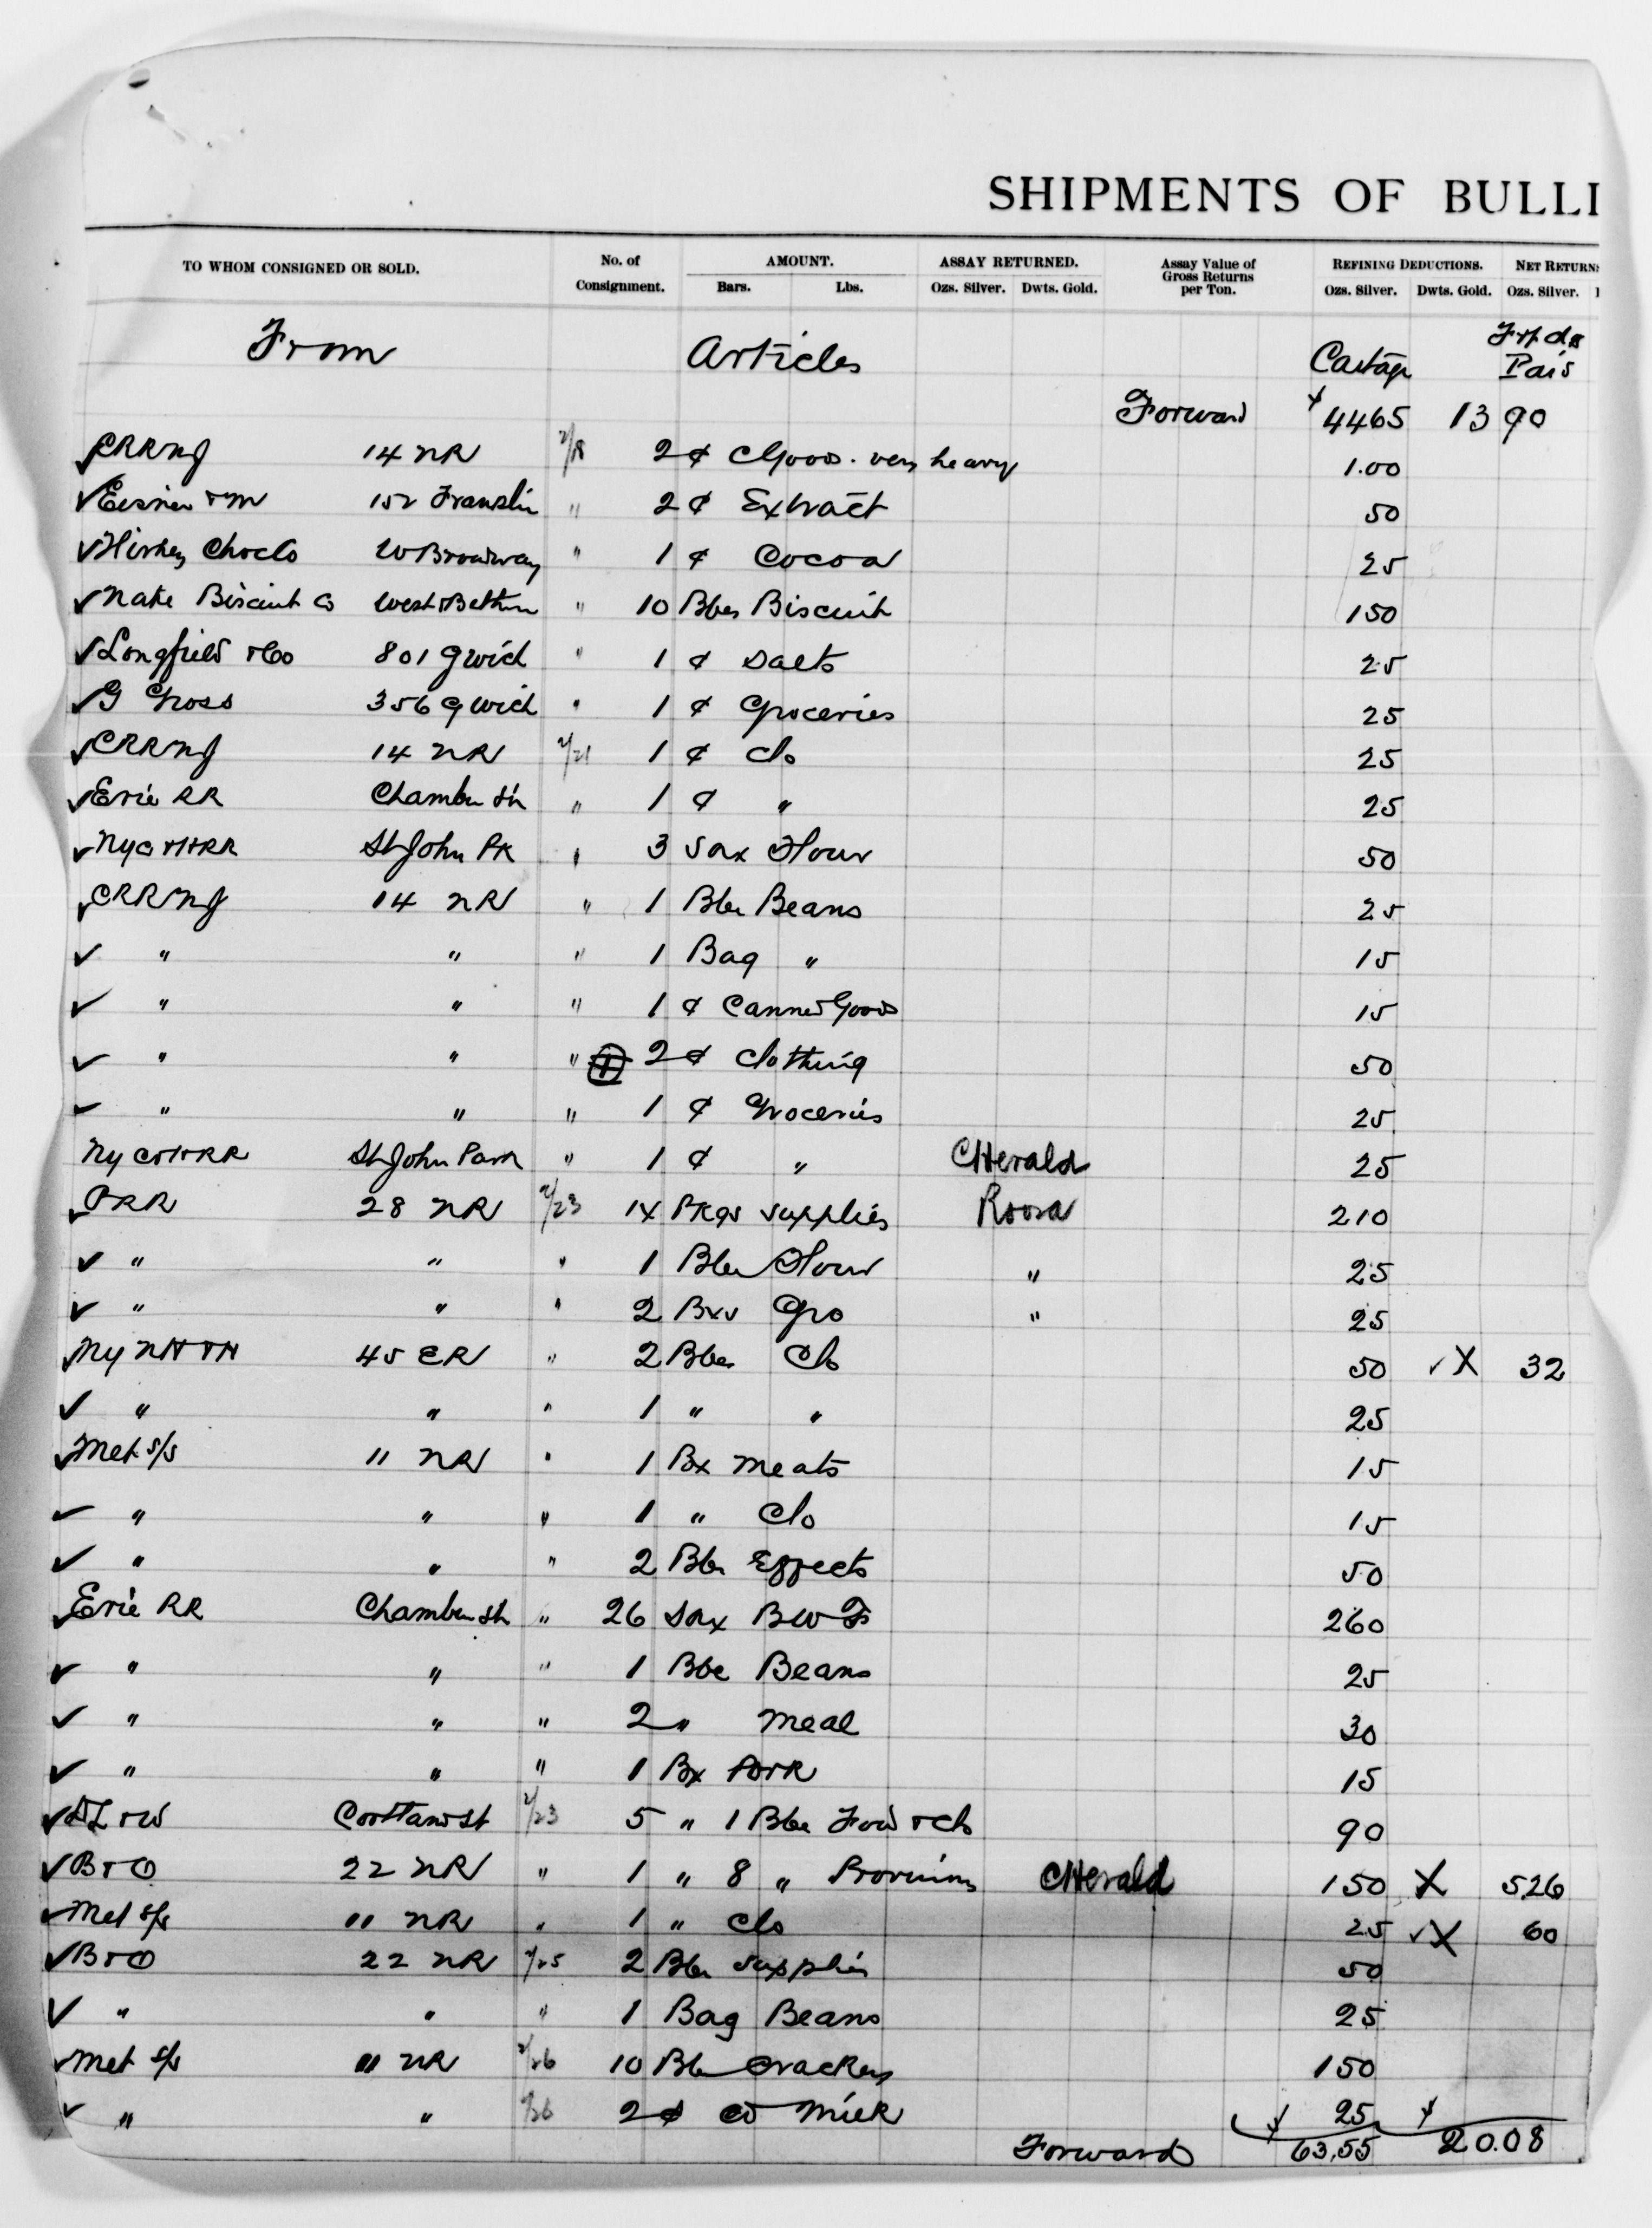 SHIPMENTS OF BULLI
TO WHOM CONSIGNED OR SOLD. No. of Consignment. AMOUNT. Bars. Lbs. ASSAY RETURNED. Ozs. Silver. Dwts. Gold. Assay Value of Gross Returns per Ton. REFINING DEDUCTIONS. Ozs. Silver. Dwts. Gold. NET RETURNS Ozs. Silver.
From Articles Cartage Frt chgs Paid
Forward $ 4465 13 90
✓ CRRNJ 14 NR 2/18 2 ¢ Goods. very heavy 1.00
✓ Eisner + M 152 Franklin " 2 ¢ Extract 50
✓ Hirshey Choclo W Broadway " 1 ¢ Cocoa 25
✓ Nate Biscuit Co West + Bethun " 10 Bbls Biscuit 150
✓ Longfield + Co 801 Gwich " 1 ¢ Salts 25
✓ G Gross 356 Gwich " 1 ¢ Groceries 25
✓ CRRNJ 14 NR 2/21 1 ¢ Clo 25
✓ Erie RR Chamber St " 1 ¢ " 25
✓ NYC+HRR St John Pk " 3 Sax Flour 50
✓ CRRNJ 14 NR " 1 Bbl Beans 25
✓ " " " 1 Bag " 15
✓ " " " 1 ¢ Canned Goods 15
✓ " " " 2 ¢ Clothing 50
✓ " " " 1 ¢ Groceries 25
NYC+HRR St John Park " 1 ¢ " CHerald 25
✓ PRR 28 NR 2/23 14 Pkgs Supplies Roosa 210
✓ " " " 1 Bbl Flour " 25
✓ " " " 2 Bxs Gro " 25
✓ NY NH+H 45 ER " 2 Bbls Clo 50 ✓ X 32
✓ " " " 1 " " 25
✓ Met S/S 11 NR " 1 Bx Meats 15
✓ " " " 1 " Clo 15
✓ " " " 2 Bbl Effects 50
✓ Erie RR Chamber St " 26 Sax BWF 260
✓ " " " 1 Bbl Beans 25
✓ " " " 2 " Meal 30
✓ " " " 1 Bx Pork 15
✓ DL+W Cortland St 2/23 5 " 1 Bbl Food + Clo 90
✓ B+O 22 NR " 1 " 8 " Provisions CHerald 150 X 526
✓ Met S/S 11 NR " 1 " Clo 25 ✓ X 60
✓ B+O 22 NR 2/25 2 Bbl Supplies 50
✓ " " " 1 Bag Beans 25
✓ Met S/S 11 NR 2/26 10 Bbl Crackers 150
✓ " " 2/26 2 ¢ Cd Milk 25
Forward $ 63.55 $ 20.08